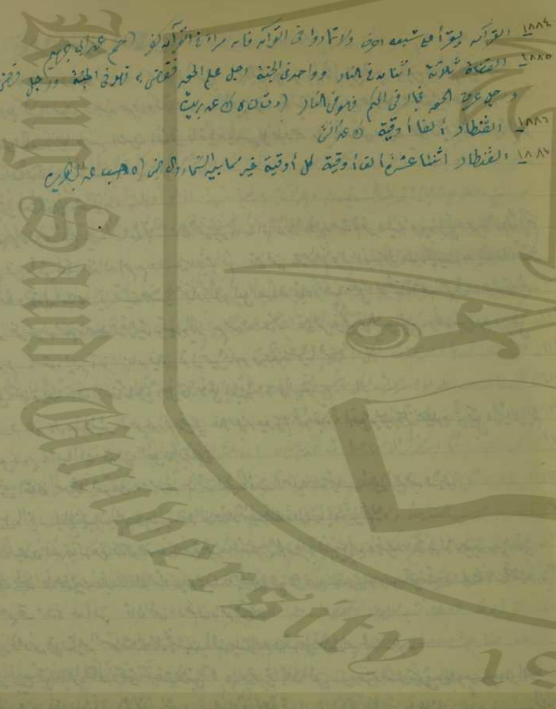 ١٨٨٤ القرآن يقرأ على سبعة أحرف ولا تماروا في القرآن فإن مراء في القرآن كفر (حم عن أبي جهيم
١٨٨٥ القضاة ثلاثة اثنان في النار وواحد في الجنة رجل علم الحق فقضى به فهو في الجنة ورجل قضى
ورجل عرف الحق فجار في الحكم فهو في النار
١٨٨٦ القنطار ألفا أوقية ك عن أنس
١٨٨٧ القنطار اثنتا عشرة ألف أوقية كل أوقية خير مما بين السماء والأرض
University